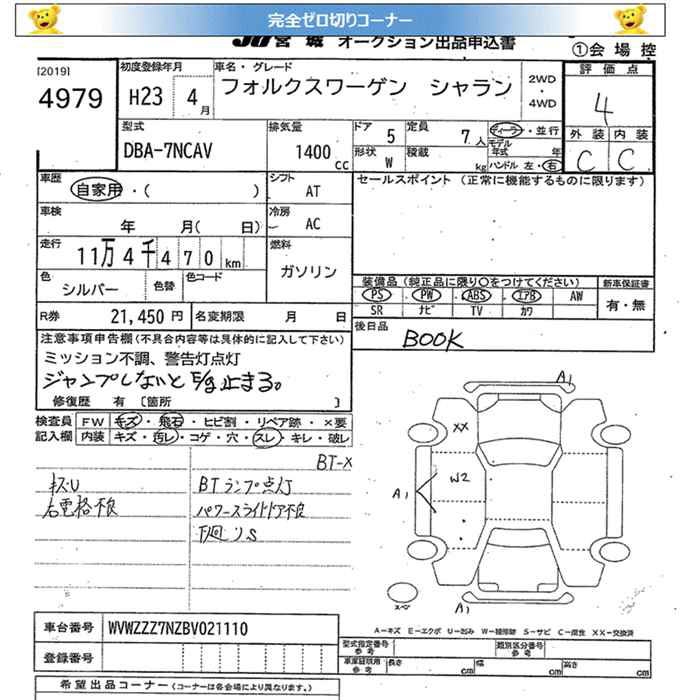 完全ゼロ切りコーナー
JU宮城 オークション出品申込書
①会場控
[2019]
4979
初度登録年月
H23 4月
車名・グレード
フォルクスワーゲン シャラン
2WD
・
4WD
評価点
4
外装 内装
C C
型式
DBA-7NCAV
排気量
1400cc
ドア 5
定員 7人
形状 W
積載 kg
ディーラー・並行
モデル年式 年
ハンドル 左・右
車歴
自家用・( )
シフト AT
セールスポイント (正常に機能するものに限ります)
車検
年 月( 日)
冷房 AC
走行
11万4千470km
燃料
ガソリン
色
シルバー
色替
色コード
装備品(純正品に限り○をつけてください)
新車保証書
PS PW ABS エアB AW
SR ナビ TV カワ
有・無
R券 21,450円
名変期限 月 日
後日品
BOOK
注意事項申告欄(不具合内容等は具体的に記入して下さい)
ミッション不調、警告灯点灯
ジャンプしないとE/g止まる。
修復歴 有〔箇所 〕
検査員記入欄
FW キズ・飛石・ヒビ割・リペア跡・×要
内装 キズ・汚レ・コゲ・穴・スレ・キレ・破レ
BT-X
キズU
右電格不良
BTランプ点灯
パワースライドドア不良
下廻りS
A1
XX
W2
A1
A1
スペア
A-キズ E-エクボ U-凹み W-補修跡 S-サビ C-腐食 XX-交換済
車台番号 WVWZZZ7NZBV021110
登録番号
型式指定番号 参考
類別区分番号 参考
車庫証明用 参考
長さ cm
幅 cm
高さ cm
希望出品コーナー(コーナーは各会場により異なります。)